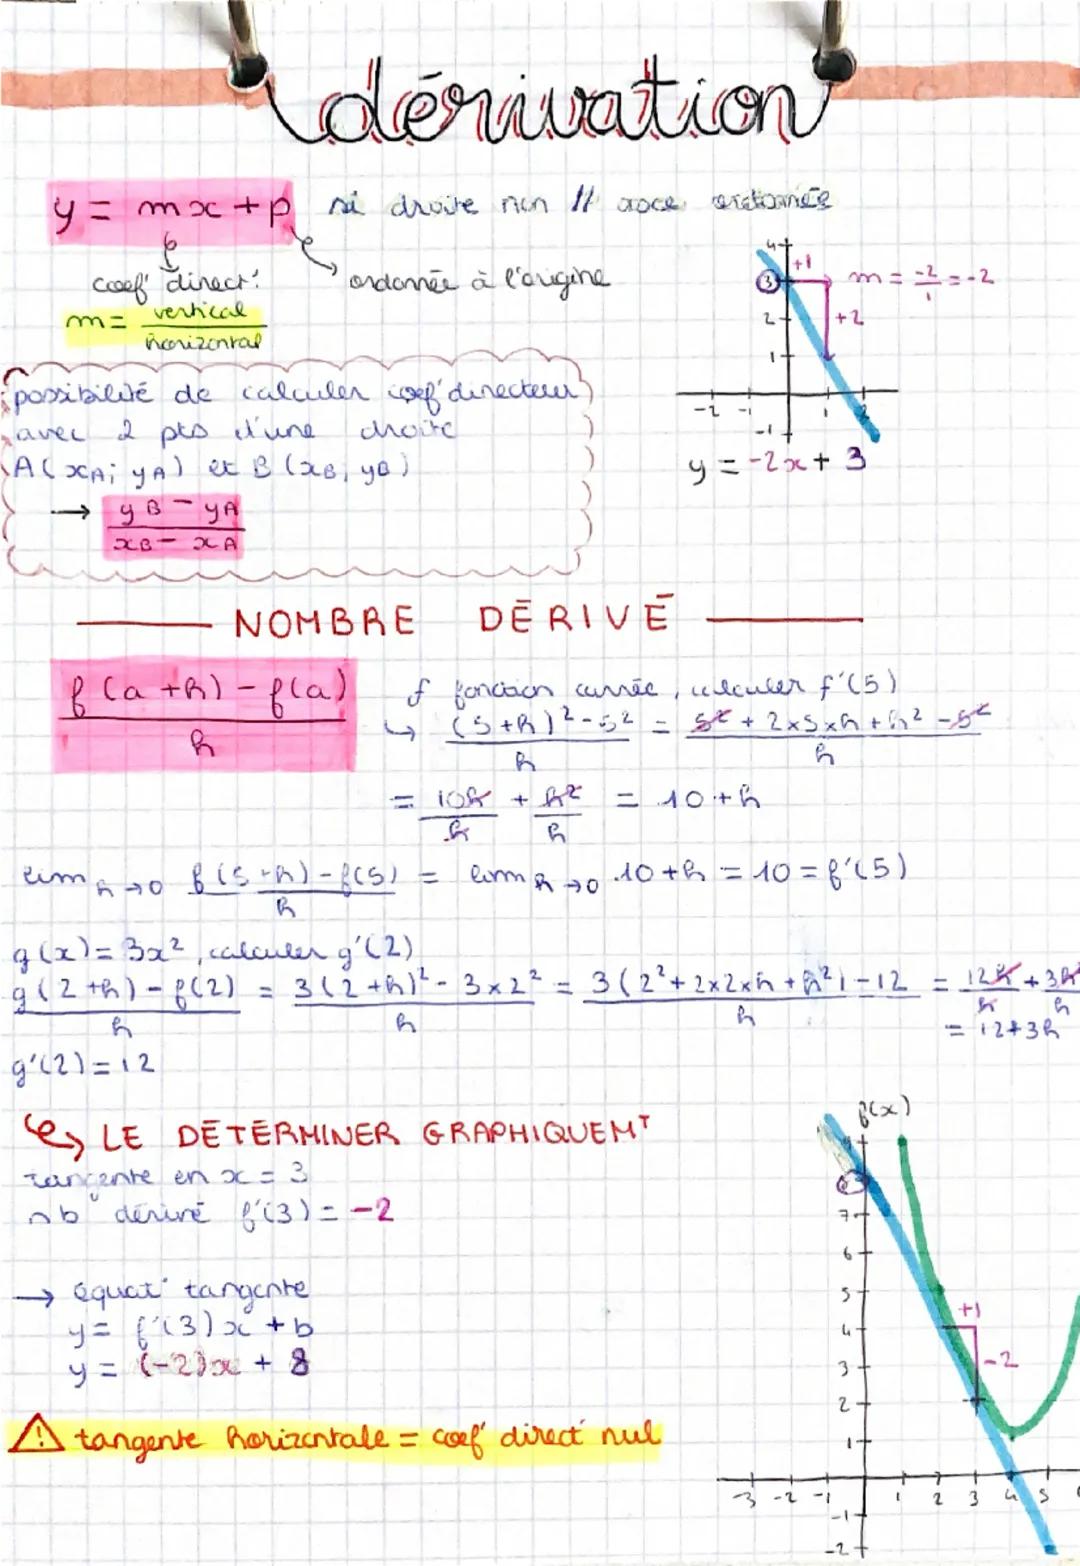 dérivation
y = mx + p si droite non // axe ordonnée
coef' direct' ordonnée à l'origine
m = vertical / horizontal
4
+1
3 m = -2/1 = -2
2 +2
1
-2 -1 1 2
-1
y = -2x + 3
possibilité de calculer coef' directeur
avec 2 pts d'une droite
A(xA; yA) et B(xB; yB)
→ yB - yA / xB - xA
NOMBRE DÉRIVÉ
f(a+h) - f(a) / h
f fonction carrée, calculer f'(5)
↳ (5+h)² - 5² / h = 5² + 2×5×h + h² - 5² / h
= 10h / h + h² / h = 10 + h
lim h→0 f(5+h) - f(5) / h = lim h→0 10 + h = 10 = f'(5)
g(x) = 3x², calculer g'(2)
g(2+h) - f(2) / h = 3(2+h)² - 3×2² / h = 3(2² + 2×2×h + h²) - 12 / h = 12h / h + 3h² / h
= 12+3h
g'(2) = 12
↳ LE DÉTERMINER GRAPHIQUEMT
tangente en x = 3
nb dérivé f'(3) = -2
→ équat° tangente
y = f'(3)x + b
y = (-2)x + 8
⚠ tangente horizontale = coef' direct' nul
f(x)
9
8
7
6
5
+1
4
-2
3
2
1
-3 -2 -1 1 2 3 4 5
-1
-2